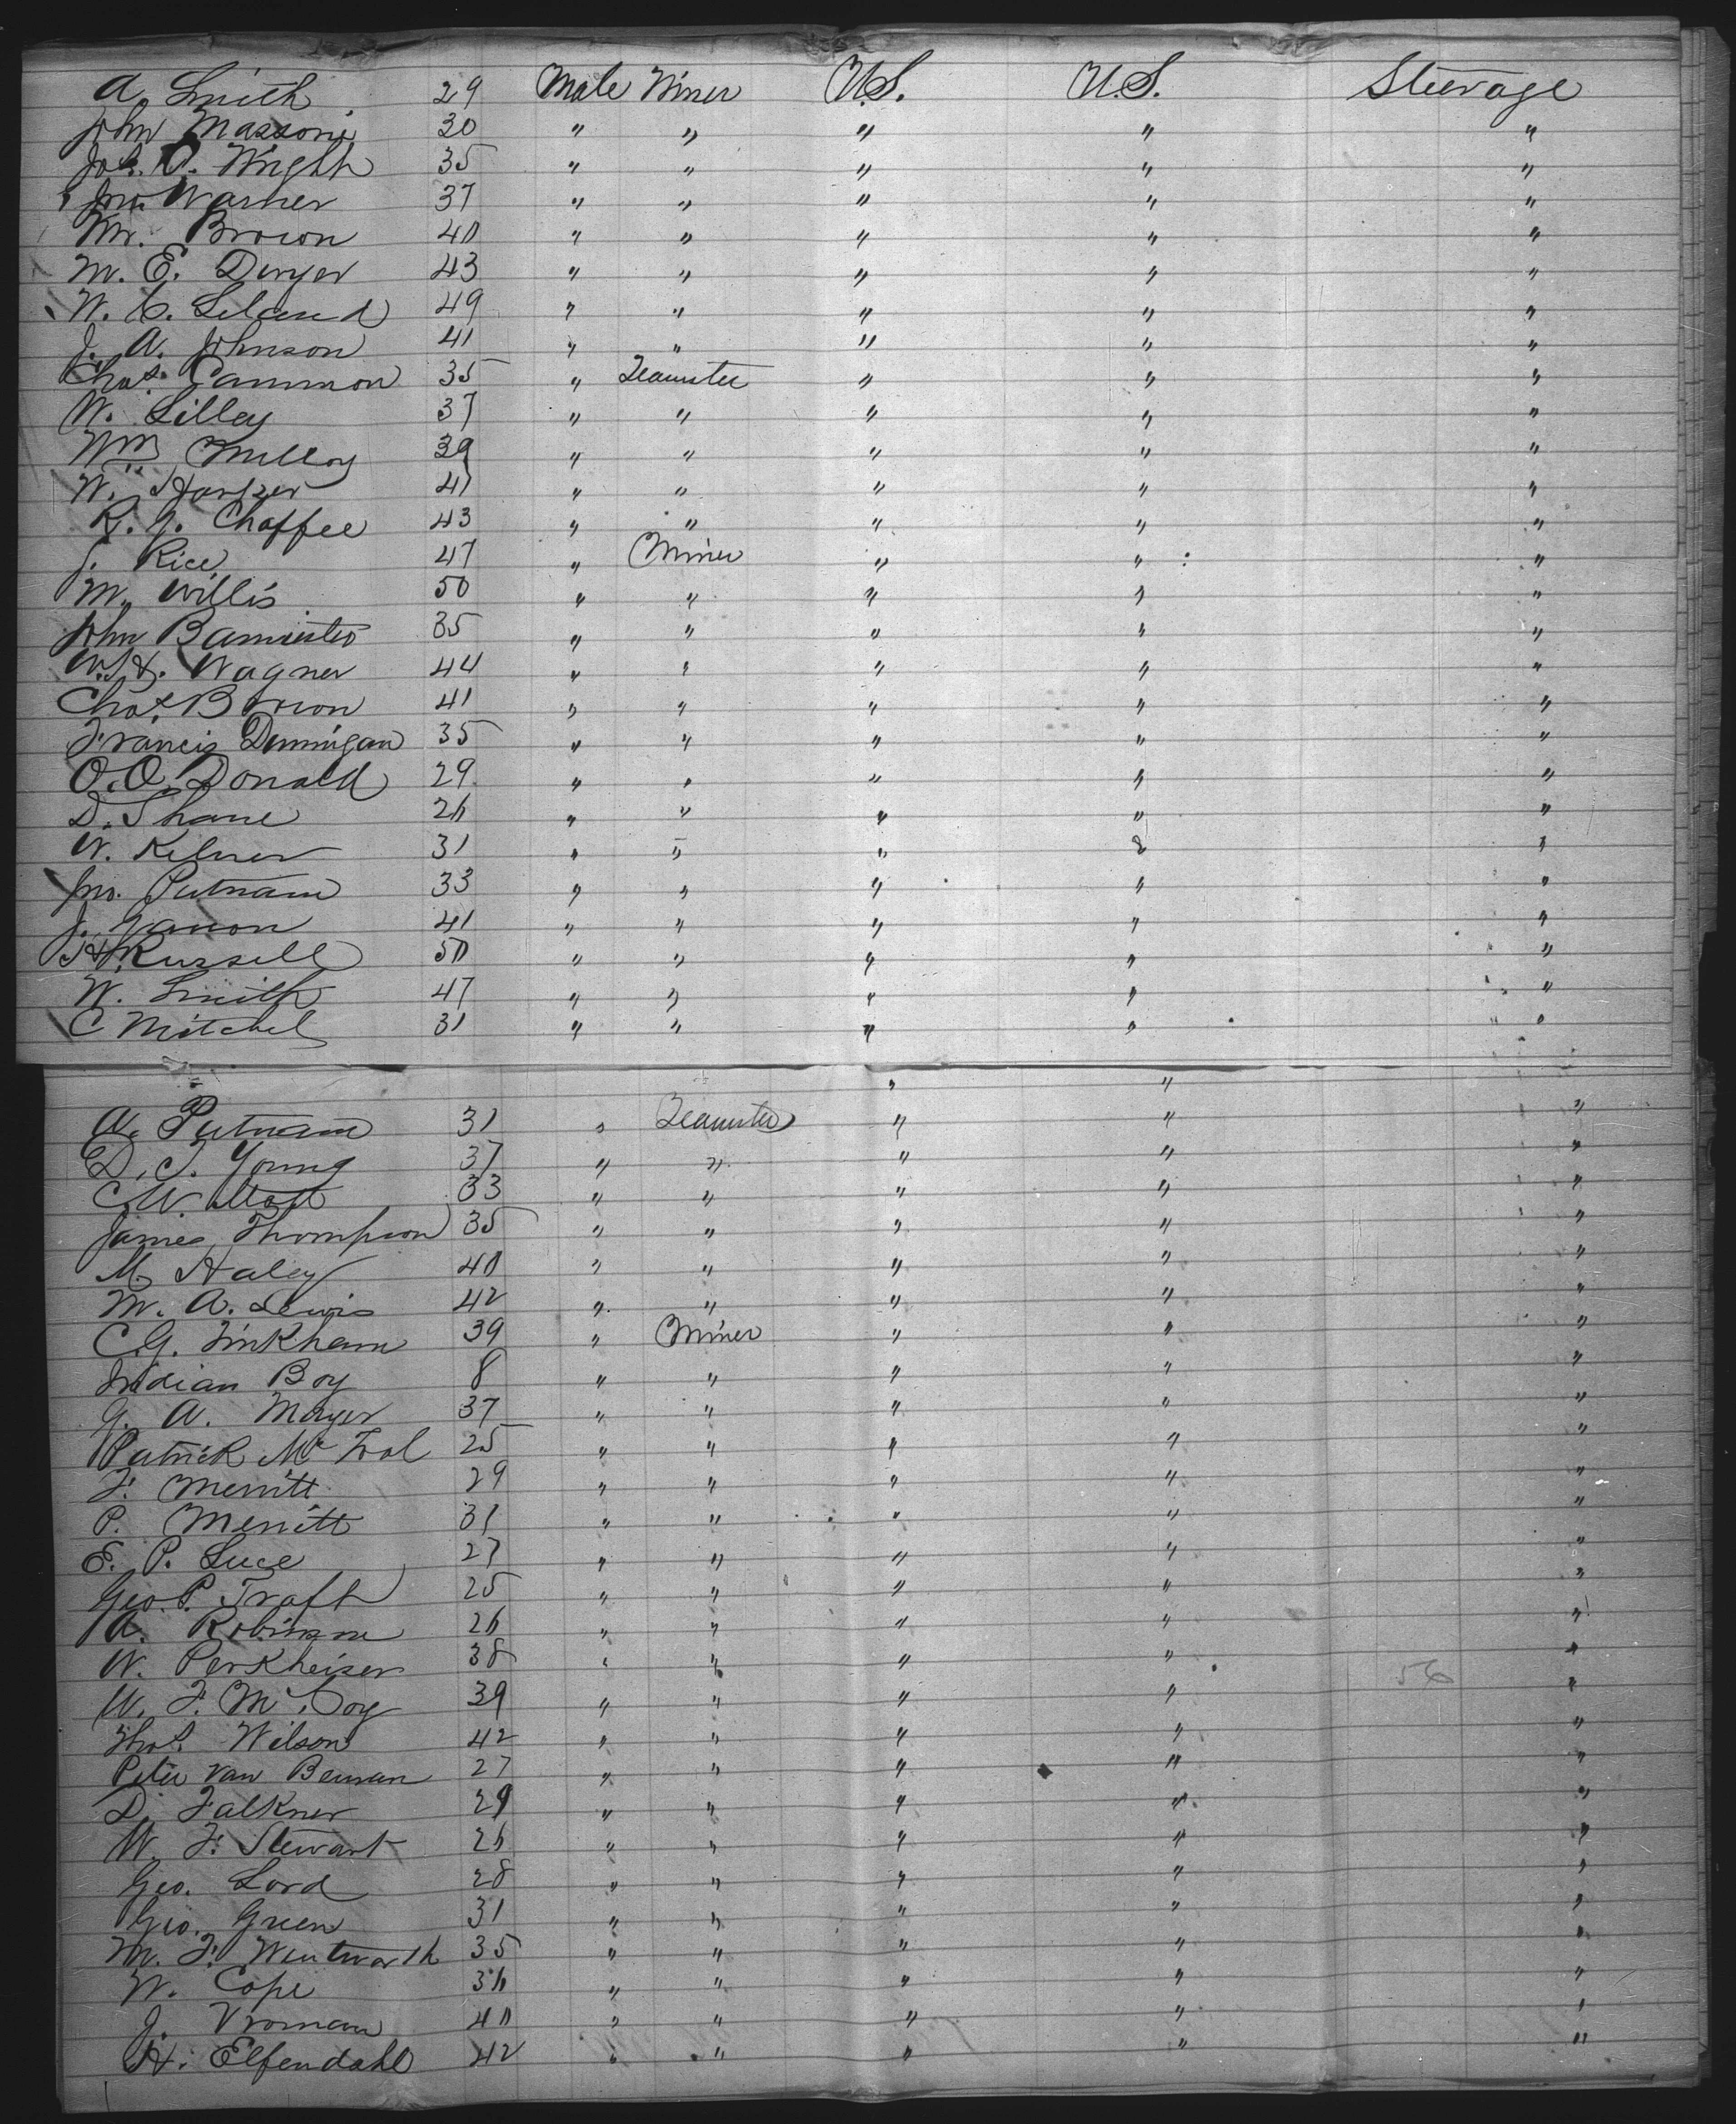 A. Smith 29 Male Miner U.S. U.S. Steerage
John Massonie 30 " " " " "
Jos. O. Wright 35 " " " " "
Jno. Warner 37 " " " " "
Mr. Brown 40 " " " " "
M. E. Dwyer 43 " " " " "
W. C. Leland 49 " " " " "
J. A. Johnson 41 " " " " "
Chas. Cammon 35 " Teamster " " "
W. Lilley 37 " " " " "
Wm Milloy 39 " " " " "
W. 41 " " " " "
R. G. Chaffee 43 " " " " "
J. Rice 47 " Miner " " "
M. Willis 50 " " " " "
John Bannister 35 " " " " "
W. H. Wagner 44 " " " " "
Chas. Brown 41 " " " " "
Francis Dunnigan 35 " " " " "
O. O. Donald 29 " " " " "
D. Shane 26 " " " " "
W. Kelner 31 " " " " "
Jno. Putnam 33 " " " " "
J. 41 " " " " "
H. Russell 50 " " " " "
W. Smith 47 " " " " "
C Mitchel 31 " " " " "
" "
A. Putnam 31 " Teamster " " "
D. J. Young 37 " " " " "
C. W. Mott 33 " " " " "
James Thompson 35 " " " " "
M. Haley 40 " " " " "
M. A. Lewis 42 " " " " "
C. G. Tinkham 39 " Miner " " "
Indian Boy 8 " " " " "
G. A. Mayer 37 " " " " "
Patrick Mc Fool 25 " " " " "
F. Merritt 29 " " " " "
P. Merritt 31 " " " " "
E. P. Luce 27 " " " " "
Geo. P. Traft 25 " " " " "
A. Robinson 26 " " " " "
W. Perkheiser 38 " " " " " 56
W. F. McCoy 39 " " " " "
Thos. Wilson 42 " " " " "
Peter van Beuran 27 " " " " "
D. Falkner 29 " " " " "
W. F. Stewart 26 " " " " "
Geo. Lord 28 " " " " "
Geo. Green 31 " " " " "
M. F. Wentworth 35 " " " " "
W. Cope 36 " " " " "
J. Vroman 40 " " " " "
H. Elfendahl 42 " " " " "